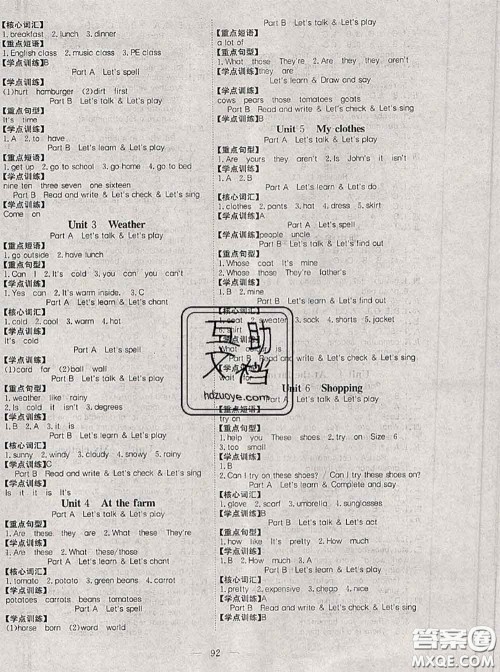 【核心词汇】
1. breakfast 2. lunch 3. dinner
【重点短语】
1. English class 2. music class 3. PE class
【学点训练】B
Part A Let's spell
【学点训练】
(1)hurt hamburger (2)dirt first
Part B Let's talk & Let's play
【重点句型】
It's time
【学点训练】
1. A 2. to have
Part B Let's learn & Let's play
【重点短语】
1. get up 2. go to school 3. go home 4. go to bed
【学点训练】
nine ten three seven one sixteen
Part B Read and write & Let's check & Let's sing
【学点训练】
Come on
Unit 3 Weather
Part A Let's talk & Let's play
【重点短语】
1. go outside 2. have lunch
【重点句型】
1. Can I 2. It's cold 3. you can you can't
【学点训练】
1. Yes can 2. It's warm inside. 3. C
Part A Let's learn & Let's chant
【核心词汇】
1. cold 2. cool 3. warm 4. hot
【学点训练】
It's cold
Part A Let's spell
【学点训练】
(1)card far (2)ball wall
Part B Let's talk & Let's play
【重点句型】
1. weather like rainy
2. Is cold it isn't 3. degrees
【学点训练】
1. B 2. A
Part B Let's learn & Let's play
【核心词汇】
1. sunny 2. windy 3. cloudy 4. snowy 5. rainy
Part B Read and write & Let's check & Let's sing
【学点训练】
Is it it is It's
Unit 4 At the farm
Part A Let's talk & Let's play
【重点句型】
1. Are these they are 2. Are these
【学点训练】
1. Are these they are 2. What these/those
Part A Let's learn & Let's chant
【核心词汇】
1. tomato 2. potato 3. green beans 4. carrot
【学点训练】
potatoes carrots beans tomatoes
Part A Let's spell
【学点训练】
(1)horse born (2)word world
Part B Let's talk & Let's play
【重点短语】
a lot of
【重点句型】
1. What those They're 2. Are they they aren't
【学点训练】they are
Part B Let's learn & Draw and say
【核心词汇】
cows pears those tomatoes goats
Part B Read and write & Let's check & Let's sing
【学点训练】B
Unit 5 My clothes
Part A Let's talk & Let's play
【重点句型】
1. Are yours they aren't 2. Is John's it isn't
【学点训练】
1. A 2. B
Part A Let's learn & Let's do
【核心词汇】
1. clothes 2. pants 3. hat 4. dress 5. skirt
【学点训练】A
Part A Let's spell
【学点训练】people uncle
Part B Let's talk & Let's find out
【重点句型】
1. Whose coat It's mine
2. Whose are these They're father's
【学点训练】
1. B 2. mine
Part B Let's learn & Let's find out
【核心词汇】
1. coat 2. sweater 3. sock 4. shorts 5. jacket
6. shirt
【学点训练】
What
Part B Read and write & Let's check & Let's sing
wait for
Unit 6 Shopping
Part A Let's talk & Let's play
【重点短语】
try on
【重点句型】
1. help you These shoes 2. try on Size 6
3. too small
【学点训练】
1. B
2. Can I try on these shoes? / Can I try these shoes on?
Part A Let's learn & Complete and say
【核心词汇】
1. glove 2. scarf 3. umbrella 4. sunglasses
【学点训练】B
Part B Let's talk & Let's act
【重点句型】
1. how like It's pretty 2. How much
【学点训练】
1. B 2. How much 3. A
Part B Let's learn & Let's play
【核心词汇】
1. pretty 2. expensive 3. cheap 4. nice
【学点训练】B
Part B Read and write & Let's check & Let's sing
【学点训练】B
互助
文档
hdzuoye.com
92
答案圈
MXQE.COM